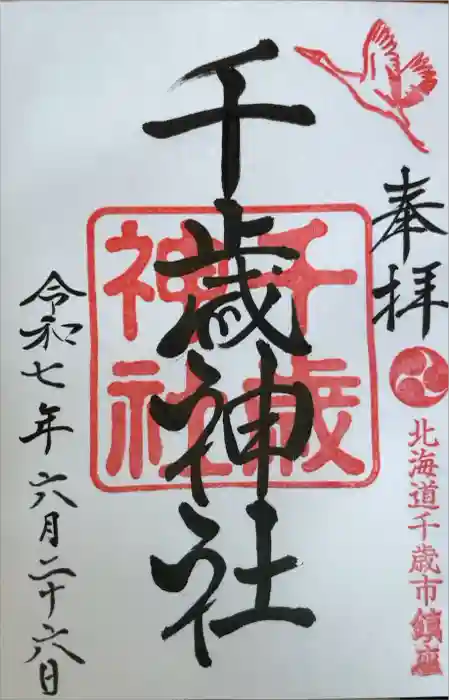 奉拝
北海道千歳市鎮座
千歳神社
千歳神社
令和七年六月二十六日